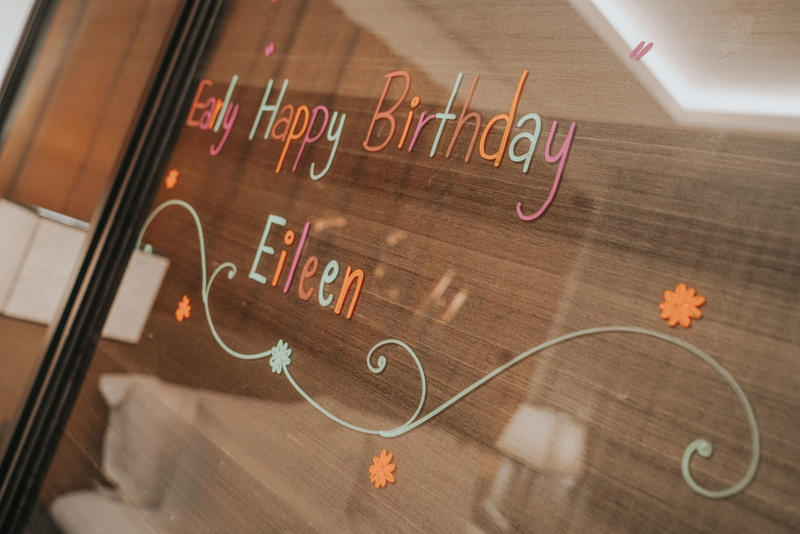 Early Happy Birthday
Eileen